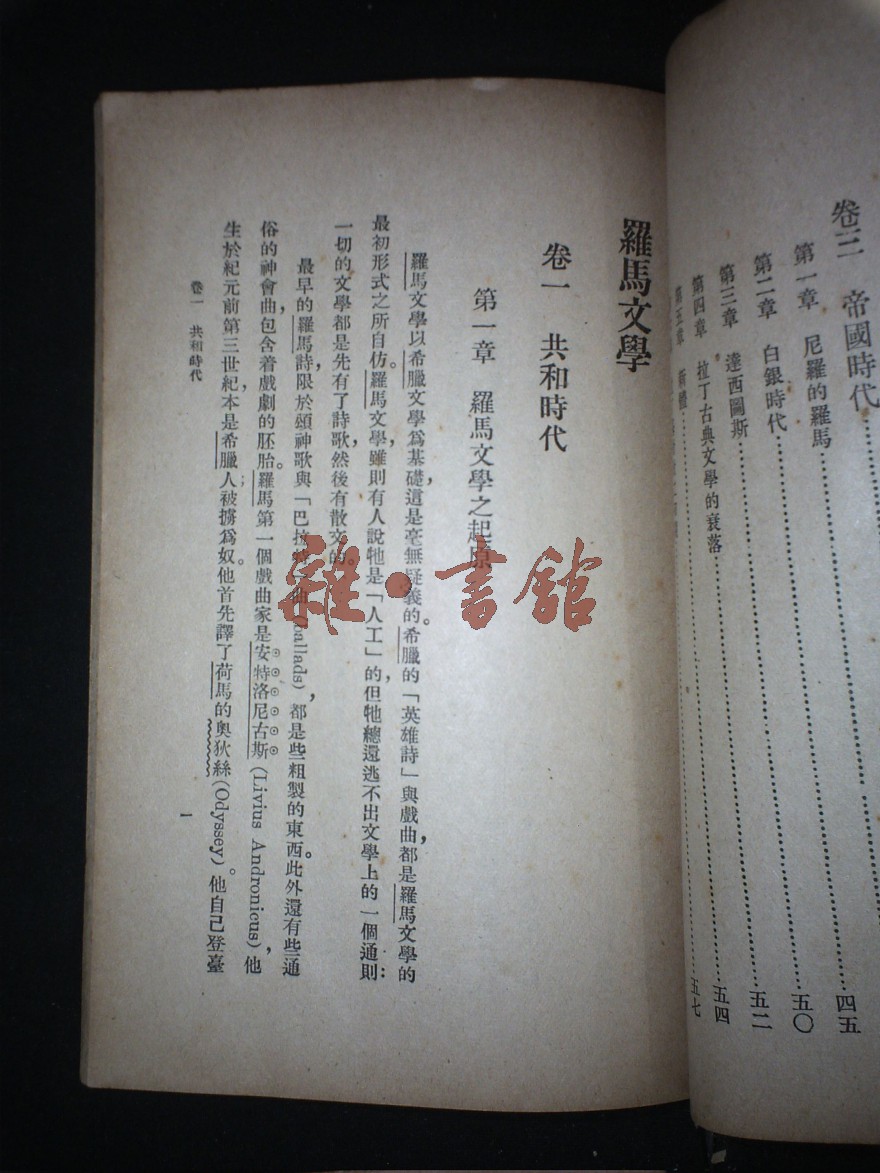 卷三　帝國時代……
第一章　尼羅的羅馬……四五
第二章　白銀時代……五〇
第三章　達西圖斯……五二
第四章　拉丁古典文學的衰落……五四
第五章　新體……五七
羅馬文學
卷一　共和時代
第一章　羅馬文學之起原
羅馬文學以希臘文學爲基礎，這是毫無疑義的。希臘的「英雄詩」與戲曲，都是羅馬文學的
最初形式之所自仿。羅馬文學，雖則有人說牠是「人工」的，但牠總還逃不出文學上的一個通則：
一切的文學都是先有了詩歌，然後有散文的。
最早的羅馬詩，限於頌神歌與「巴拉 曲 (ballads)，都是些粗製的東西。此外還有些通
俗的神會曲，包含着戲劇的胚胎。羅馬第一個戲曲家是安特洛尼古斯 (Livius Andronicus)，他
生於紀元前第三世紀，本是希臘人，被擄爲奴。他首先譯了荷馬的奧狄絲 (Odyssey)。他自己登臺
卷一　共和時代
1
雜·書館